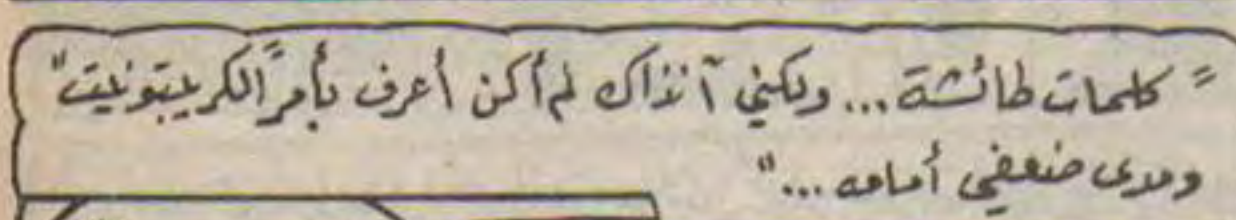 "كلمات طائشة... ولكني آنذاك لم أكن أعرف بأمر "الكريبتونيت"
ومدى ضعفي أمامه..."